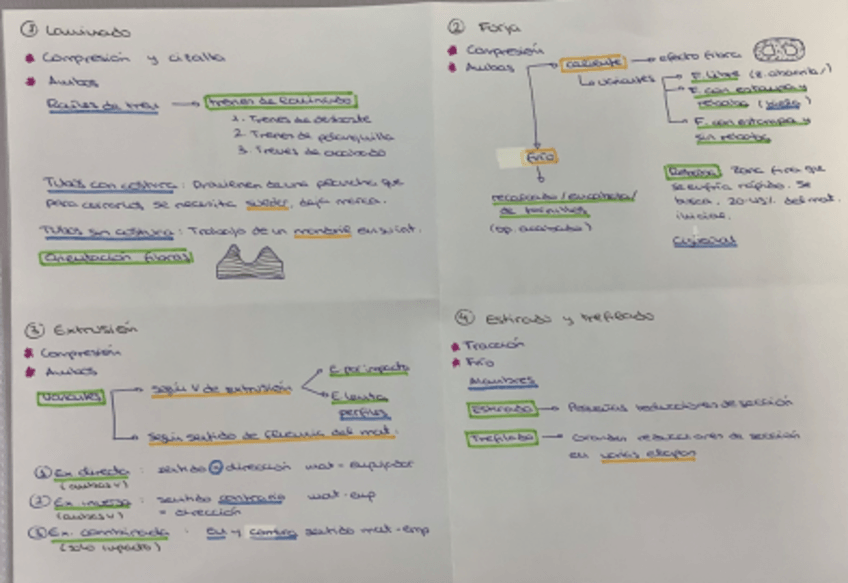 ① Laminado
* Compresión y cizalla
* Ambos
Raíles de tren → trenes de laminado
1. Trenes de desbaste
2. Trenes de palanquilla
3. Trenes de acabado
Tubos con costura: Provienen de una plancha que
para cerrarlos se necesita soldar, deja marca.
Tubos sin costura: Trabajo de un mandril en su int.
Orientación fibras
② Forja
* Compresión
* Ambos
caliente → efecto fibra
Variantes
F. libre
F. con estampa y
rebaba
F. con estampa y
sin rebaba
Frío
recalcado / en cabeza /
de tornillos
(op. acabado)
Rebaba: Zona fina que
se enfría rápido. Se
busca. 20-45% del mat.
inicial.
③ Extrusión
* Compresión
* Ambos
Variantes
según V de extrusión
E. por impacto
E. lenta
perfiles
Según sentido de fluencia del mat.
① Ex directa: sentido = dirección mat = empujador
(ambas v)
② Ex inversa: sentido contrario mat-emp
(ambas v) = dirección
③ Ex. combinada: sentido mat-emp
(solo impacto)
④ Estirado y trefilado
* Tracción
* Frío
Alambres
Estirado → Pequeñas reducciones de sección
Trefilado → Grandes reducciones de sección
en varias etapas